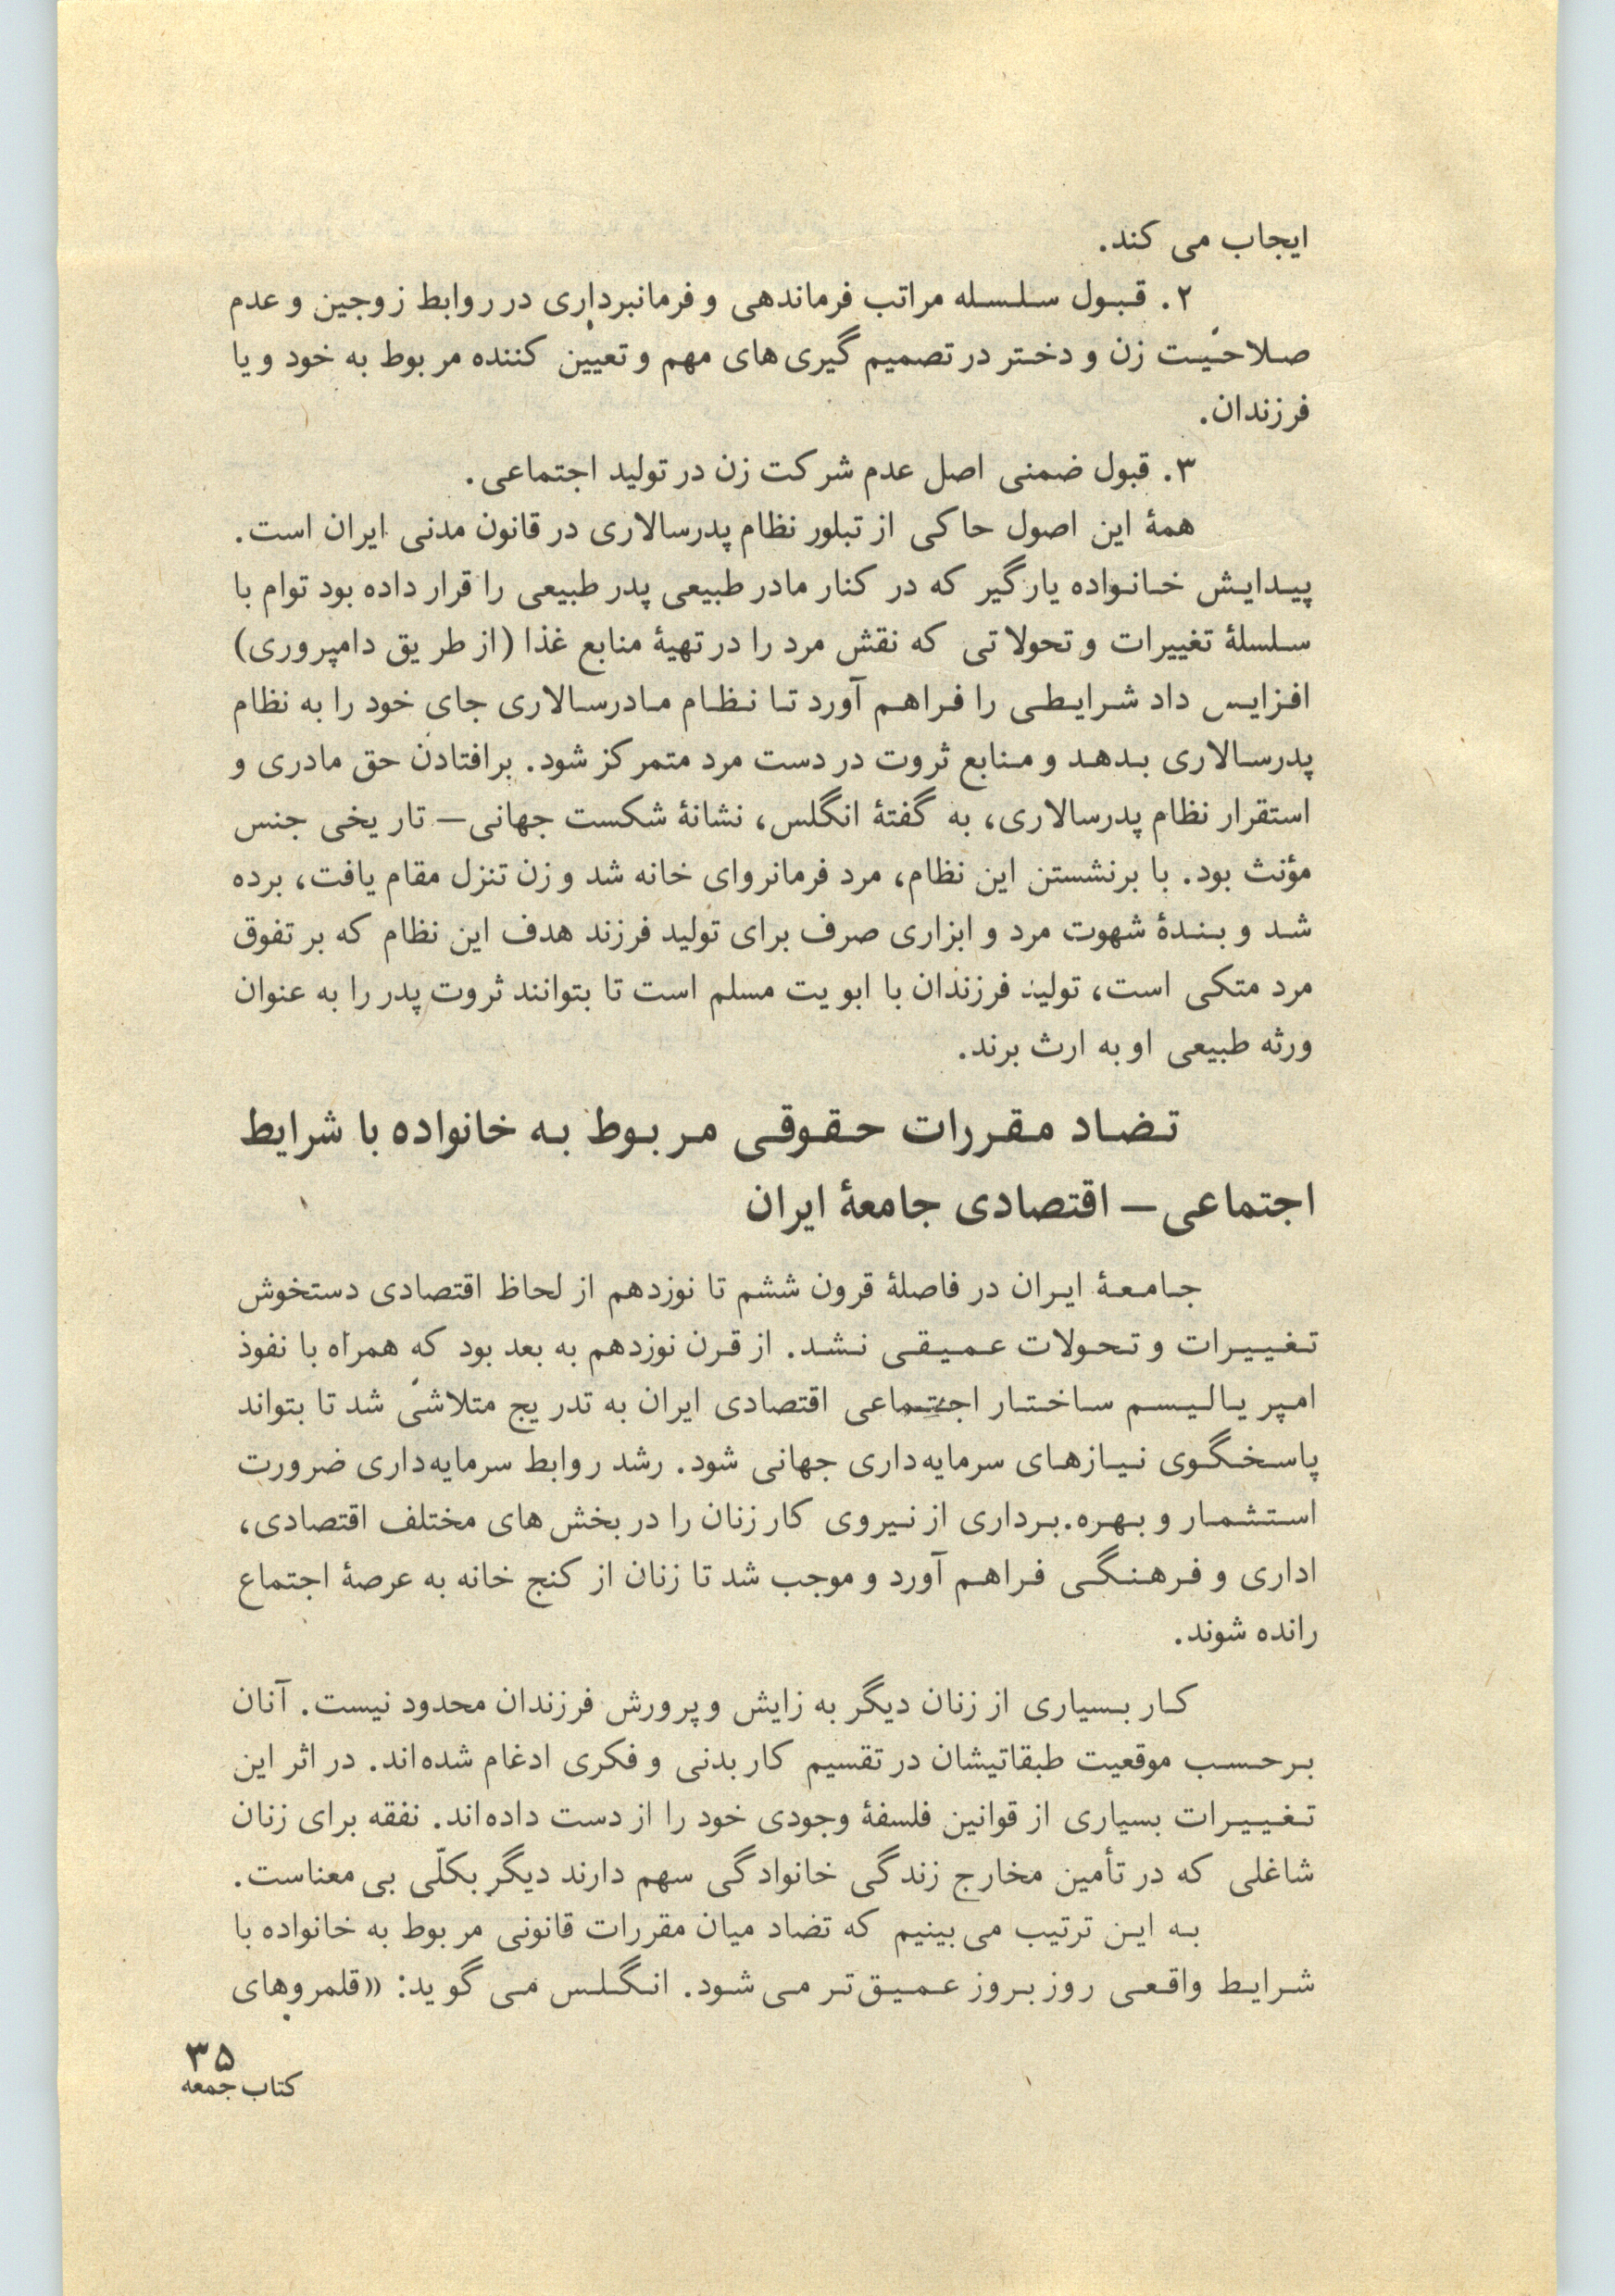 ایجاب می کند.
۲. قبول سلسله مراتب فرماندهی و فرمانبرداری در روابط زوجین و عدم
صلاحیت زن و دختر در تصمیم گیری های مهم و تعیین کننده مربوط به خود و یا
فرزندان.
۳. قبول ضمنی اصل عدم شرکت زن در تولید اجتماعی.
همهٔ این اصول حاکی از تبلور نظام پدرسالاری در قانون مدنی ایران است.
پیدایش خانواده یارگیر که در کنار مادر طبیعی پدر طبیعی را قرار داده بود توام با
سلسلهٔ تغییرات و تحولاتی که نقش مرد را در تهیهٔ منابع غذا (از طریق دامپروری)
افزایس داد شرایطی را فراهم آورد تا نظام مادرسالاری جای خود را به نظام
پدرسالاری بدهد و منابع ثروت در دست مرد متمرکز شود. برافتادن حق مادری و
استقرار نظام پدرسالاری، به گفتهٔ انگلس، نشانهٔ شکست جهانی— تاریخی جنس
مؤنث بود. با برنشستن این نظام، مرد فرمانروای خانه شد و زن تنزل مقام یافت، برده
شد و بندهٔ شهوت مرد و ابزاری صرف برای تولید فرزند هدف این نظام که بر تفوق
مرد متکی است، تولید فرزندان با ابویت مسلم است تا بتوانند ثروت پدر را به عنوان
ورثه طبیعی او به ارث برند.
تضاد مقررات حقوقی مربوط به خانواده با شرایط
اجتماعی— اقتصادی جامعهٔ ایران
جامعهٔ ایران در فاصلهٔ قرون ششم تا نوزدهم از لحاظ اقتصادی دستخوش
تغییرات و تحولات عمیقی نشد. از قرن نوزدهم به بعد بود که همراه با نفوذ
امپریالیسم ساختار اجتماعی اقتصادی ایران به تدریج متلاشی شد تا بتواند
پاسخگوی نیازهای سرمایه‌داری جهانی شود. رشد روابط سرمایه‌داری ضرورت
استثمار و بهره.برداری از نیروی کار زنان را در بخش های مختلف اقتصادی،
اداری و فرهنگی فراهم آورد و موجب شد تا زنان از کنج خانه به عرصهٔ اجتماع
رانده شوند.
کار بسیاری از زنان دیگر به زایش و پرورش فرزندان محدود نیست. آنان
برحسب موقعیت طبقاتیشان در تقسیم کار بدنی و فکری ادغام شده‌اند. در اثر این
تغییرات بسیاری از قوانین فلسفهٔ وجودی خود را از دست داده‌اند. نفقه برای زنان
شاغلی که در تأمین مخارج زندگی خانوادگی سهم دارند دیگر بکلّی بی معناست.
به این ترتیب می بینیم که تضاد میان مقررات قانونی مربوط به خانواده با
شرایط واقعی روز بروز عمیق‌تر می شود. انگلس می گوید: «قلمروهای
۳۵
کتاب جمعه